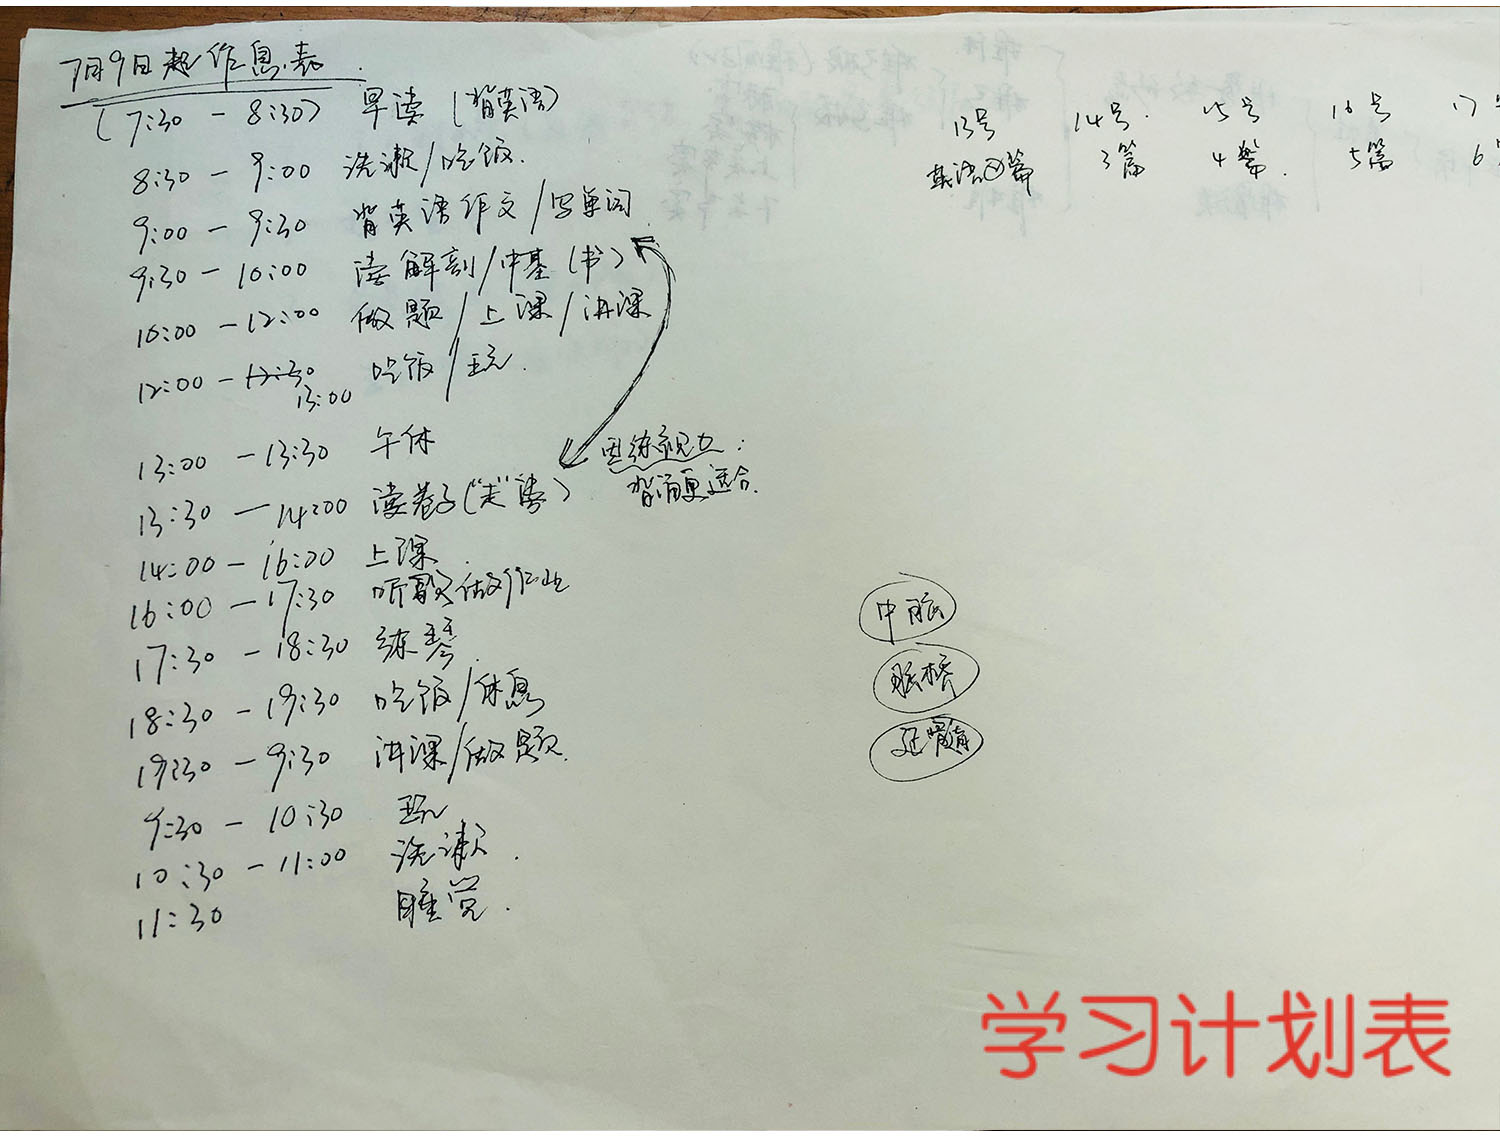 7月9日起作息表
(7:30 - 8:30) 早读 (背英语)
8:30 - 9:00 洗漱/吃饭.
9:00 - 9:30 背英语作文/写单词
9:30 - 10:00 读解剖/中基(书)
10:00 - 12:00 做题/上课/讲课
12:00 - 12:30 吃饭/玩.
13:00
13:00 - 13:30 午休
13:30 - 14:00 读卷子("走"读)
因练视力:
背诵更适合.
14:00 - 16:00 上课.
16:00 - 17:30 听歌做作业
17:30 - 18:30 练琴.
18:30 - 19:30 吃饭/休息
19:30 - 9:30 讲课/做题.
9:30 - 10:30 玩
10:30 - 11:00 洗漱.
11:30 睡觉.
13号 14号. 15号 16号 17号
英语②篇 3篇 4篇. 5篇 6
中脑
脑桥
延髓
学习计划表